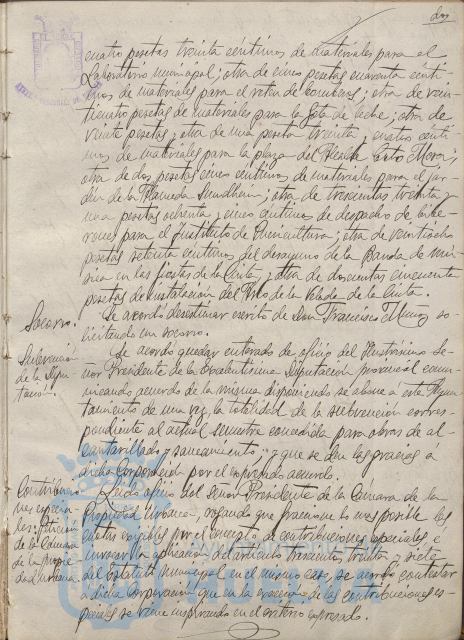 dos
cuatro pesetas treinta céntimos de materiales para el
Laboratorio municipal; otra de cinco pesetas cuarenta cénti-
mos de materiales para el retén de bomberos; otra de vein-
ticuatro pesetas de materiales para la Gota de leche; otra de
veinte pesetas; otra de una peseta treinta y cuatro cénti-
mos de materiales para la plaza del Alcalde Coto Mora;
otra de dos pesetas cinco céntimos de materiales para el jar-
dín de la Alameda Sundheim; otra de trescientas treinta y
una pesetas ochenta y cinco céntimos de despacho de bibe-
rones para el Instituto de Puericultura; otra de veintiocho
pesetas setenta céntimos del desayuno de la Banda de mú-
sica en las fiestas de la Cinta, y otra de doscientas cincuenta
pesetas de instalación del Arco de la Velada de la Cinta.
Socorro.
Se acordó desestimar escrito de Don Francisco Muñoz so-
licitando un socorro.
Subvención
de la Dipu
tación.
Se acordó quedar enterado de oficio del Ilustrísimo Se-
ñor Presidente de la Excelentísima Diputación provincial comu-
nicando acuerdo de la misma disponiendo se abone a este Ayun-
tamiento de una vez, la totalidad de la subvención corres-
pondiente al actual semestre concedida para obras de al-
cantarillado y saneamiento; y que se den las gracias a
dicha Corporación por el expresado acuerdo.
Contribucio
nes especia
les. Petición
de la Cámara
de la Propie
dad Urbana.
Leído oficio del Señor Presidente de la Cámara de la
Propiedad Urbana, rogando que fraccione lo más posible las
cuotas exigibles por el concepto de contribuciones especiales, e
invocar la aplicación del artículo trescientos treinta y siete
del Estatuto Municipal en el mismo caso, se acordó contestar
a dicha Corporación que en la exacción de las contribuciones es-
peciales se viene inspirando en el criterio expresado.